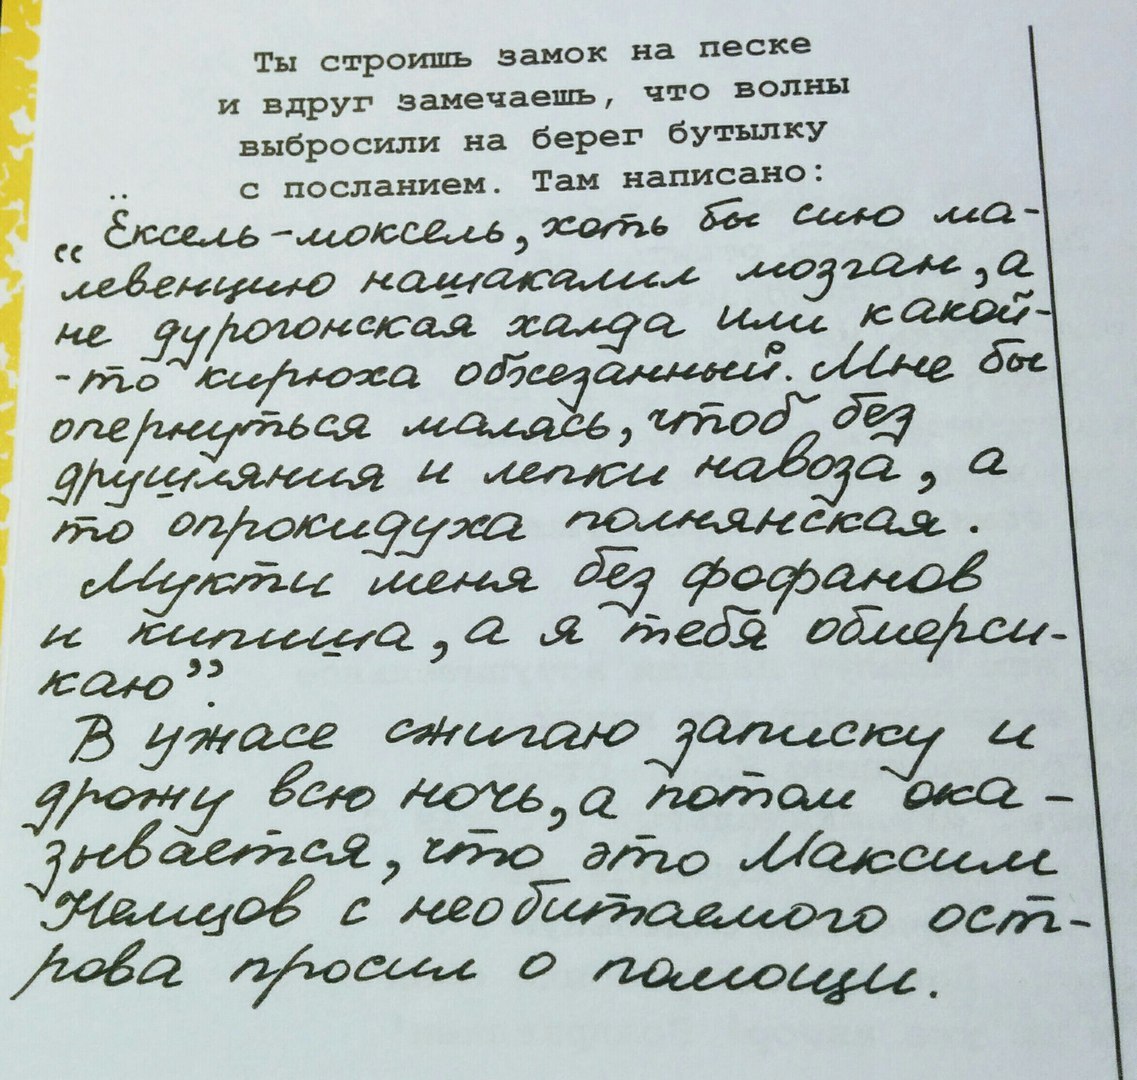 Ты строишь замок на песке
и вдруг замечаешь, что волны
выбросили на берег бутылку
с посланием. Там написано:
„Ёксель-моксель, хоть бы сию ма-
левенцию нашакалил мозган, а
не дурогонская халда или какой-
-то кирюха обжезанный. Мне бы
опернуться малясь, чтоб без
друшляния и лепки навоза, а
то опрокидуха полнянская.
Мукти меня без фофанов
и кипиша, а я тебя обмерси-
каю”.
В ужасе сжигаю записку и
дрожу всю ночь, а потом ока-
зывается, что это Максим
Немцов с необитаемого ост-
рова просил о помощи.